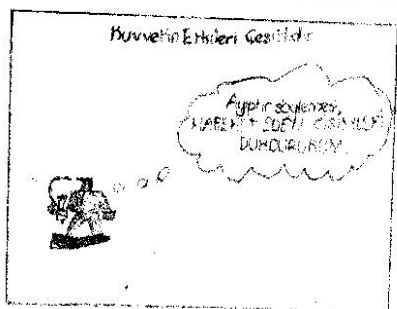 Kuvvetin Etkileri Çeşitlidir
Ayıptır söylemesi,
HAREKET EDEN CİSİMLERİ
DURDURURUM.